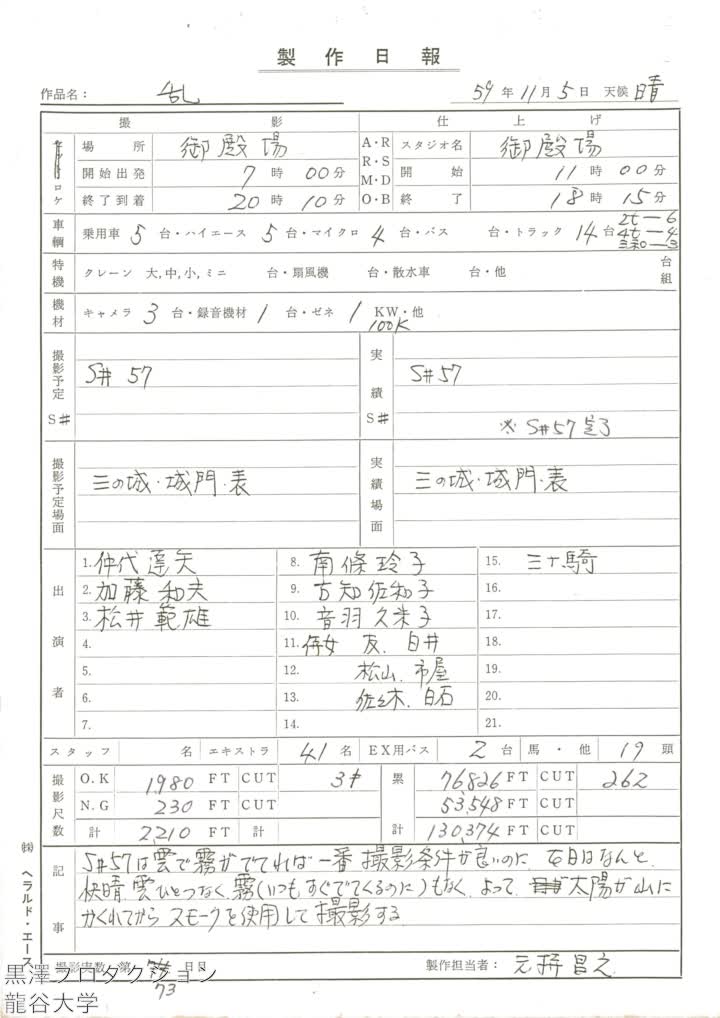 製作日報
作品名： 乱 59年11月5日 天候 晴
撮影 仕上げ
ロケ 場所 御殿場 A・R R・S M・D O・B スタジオ名 御殿場
開始出発 7時00分 開始 11時00分
終了到着 20時10分 終了 18時15分
車輌 乗用車 5 台・ハイエース 5 台・マイクロ 4 台・バス 台・トラック 14 台 2t—6 4t—4
特機 クレーン 大,中,小,ミニ 台・扇風機 台・散水車 台・他 台 組
機材 キャメラ 3 台・録音機材 1 台・ゼネ 1 KW・他
100K
撮影予定 S# S# 57 実績 S# S#57
※ S#57 完了
撮影予定場面 三の城・城門・表 実績場面 三の城・城門・表
出演者
1. 仲代達矢 8. 南條玲子 15. 三十騎
2. 加藤和夫 9. 古知佐和子 16.
3. 松井範雄 10. 音羽久米子 17.
4. 11. 侍女 友. 白井 18.
5. 12. 松山. 市屋 19.
6. 13. 佐々木. 白石 20.
7. 14. 21.
スタッフ 名 エキストラ 41名 EX用バス 2台 馬・他 19頭
撮影尺数 O.K 1,980 FT CUT 3# 累計 76,826 FT CUT 262
N.G 230 FT CUT 53,548 FT CUT
計 2210 FT 計 130,374 FT CUT
記事 S#57は雲で霧がでてれば一番撮影条件が良いのに、本日はなんと、
快晴.雲ひとつなく霧(いつもすぐでてくるのに)もなく、よって、太陽が山に
かくれてからスモークを使用して撮影する
撮影実数 第 73 日目 製作担当者：
㈱ヘラルド・エース
黒澤プロダクション
龍谷大学